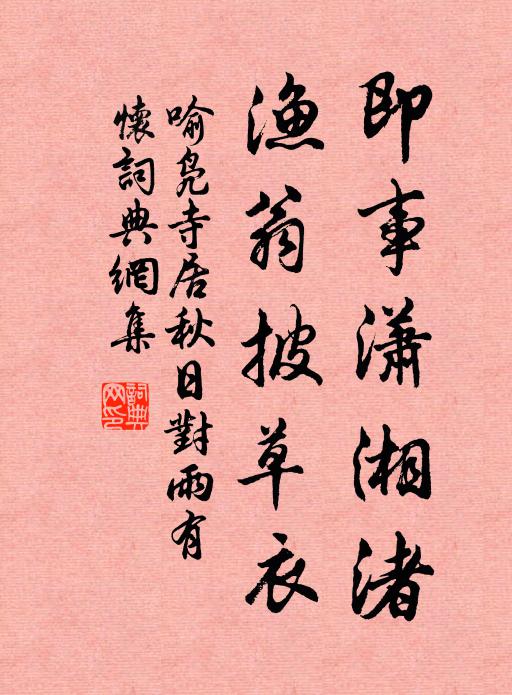 即事瀟湘渚
漁翁披草衣
喻凫寺居秋日對雨有
懷詞典網集
詞典網印